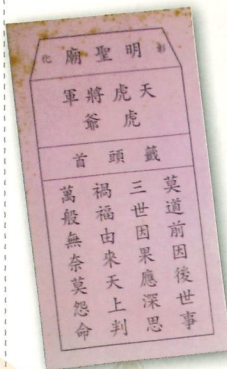 彰明聖廟化
天虎將軍
虎爺
籤頭首
莫道前因後世事
三世因果應深思
禍福由來天上判
萬般無奈莫怨命